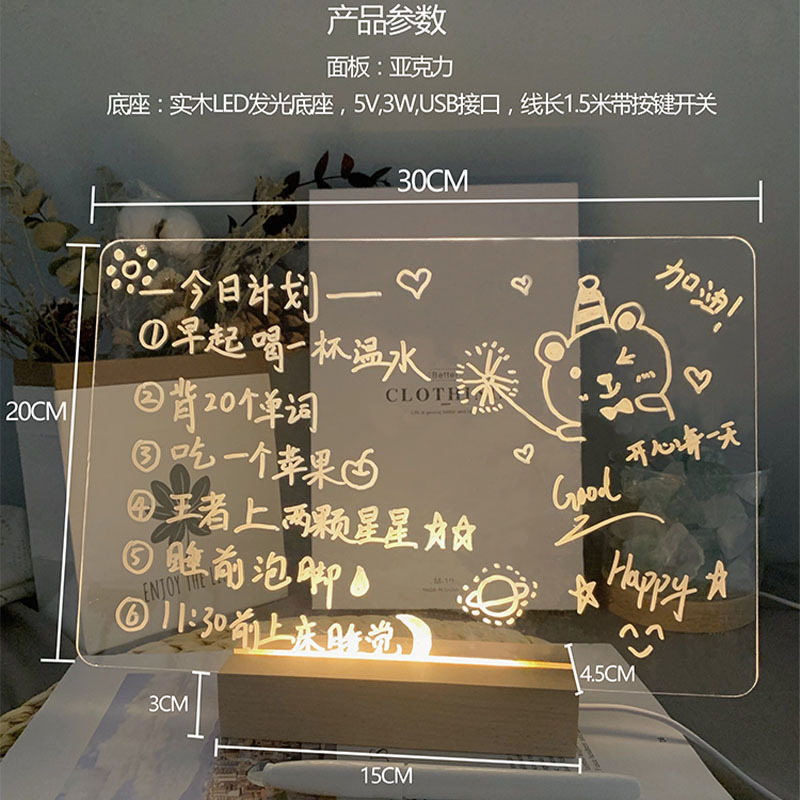 产品参数
面板：亚克力
底座：实木LED发光底座，5V,3W,USB接口，线长1.5米带按键开关
30CM
20CM
一今日计划一
①早起喝一杯温水
②背20个单词
③吃一个苹果
④王者上两颗星星
⑤睡前泡脚
⑥11:30前上床睡觉
加油!
开心每一天
Good
Happy
Better
CLOTHI
ENJOY THE
M-19
4.5CM
3CM
15CM